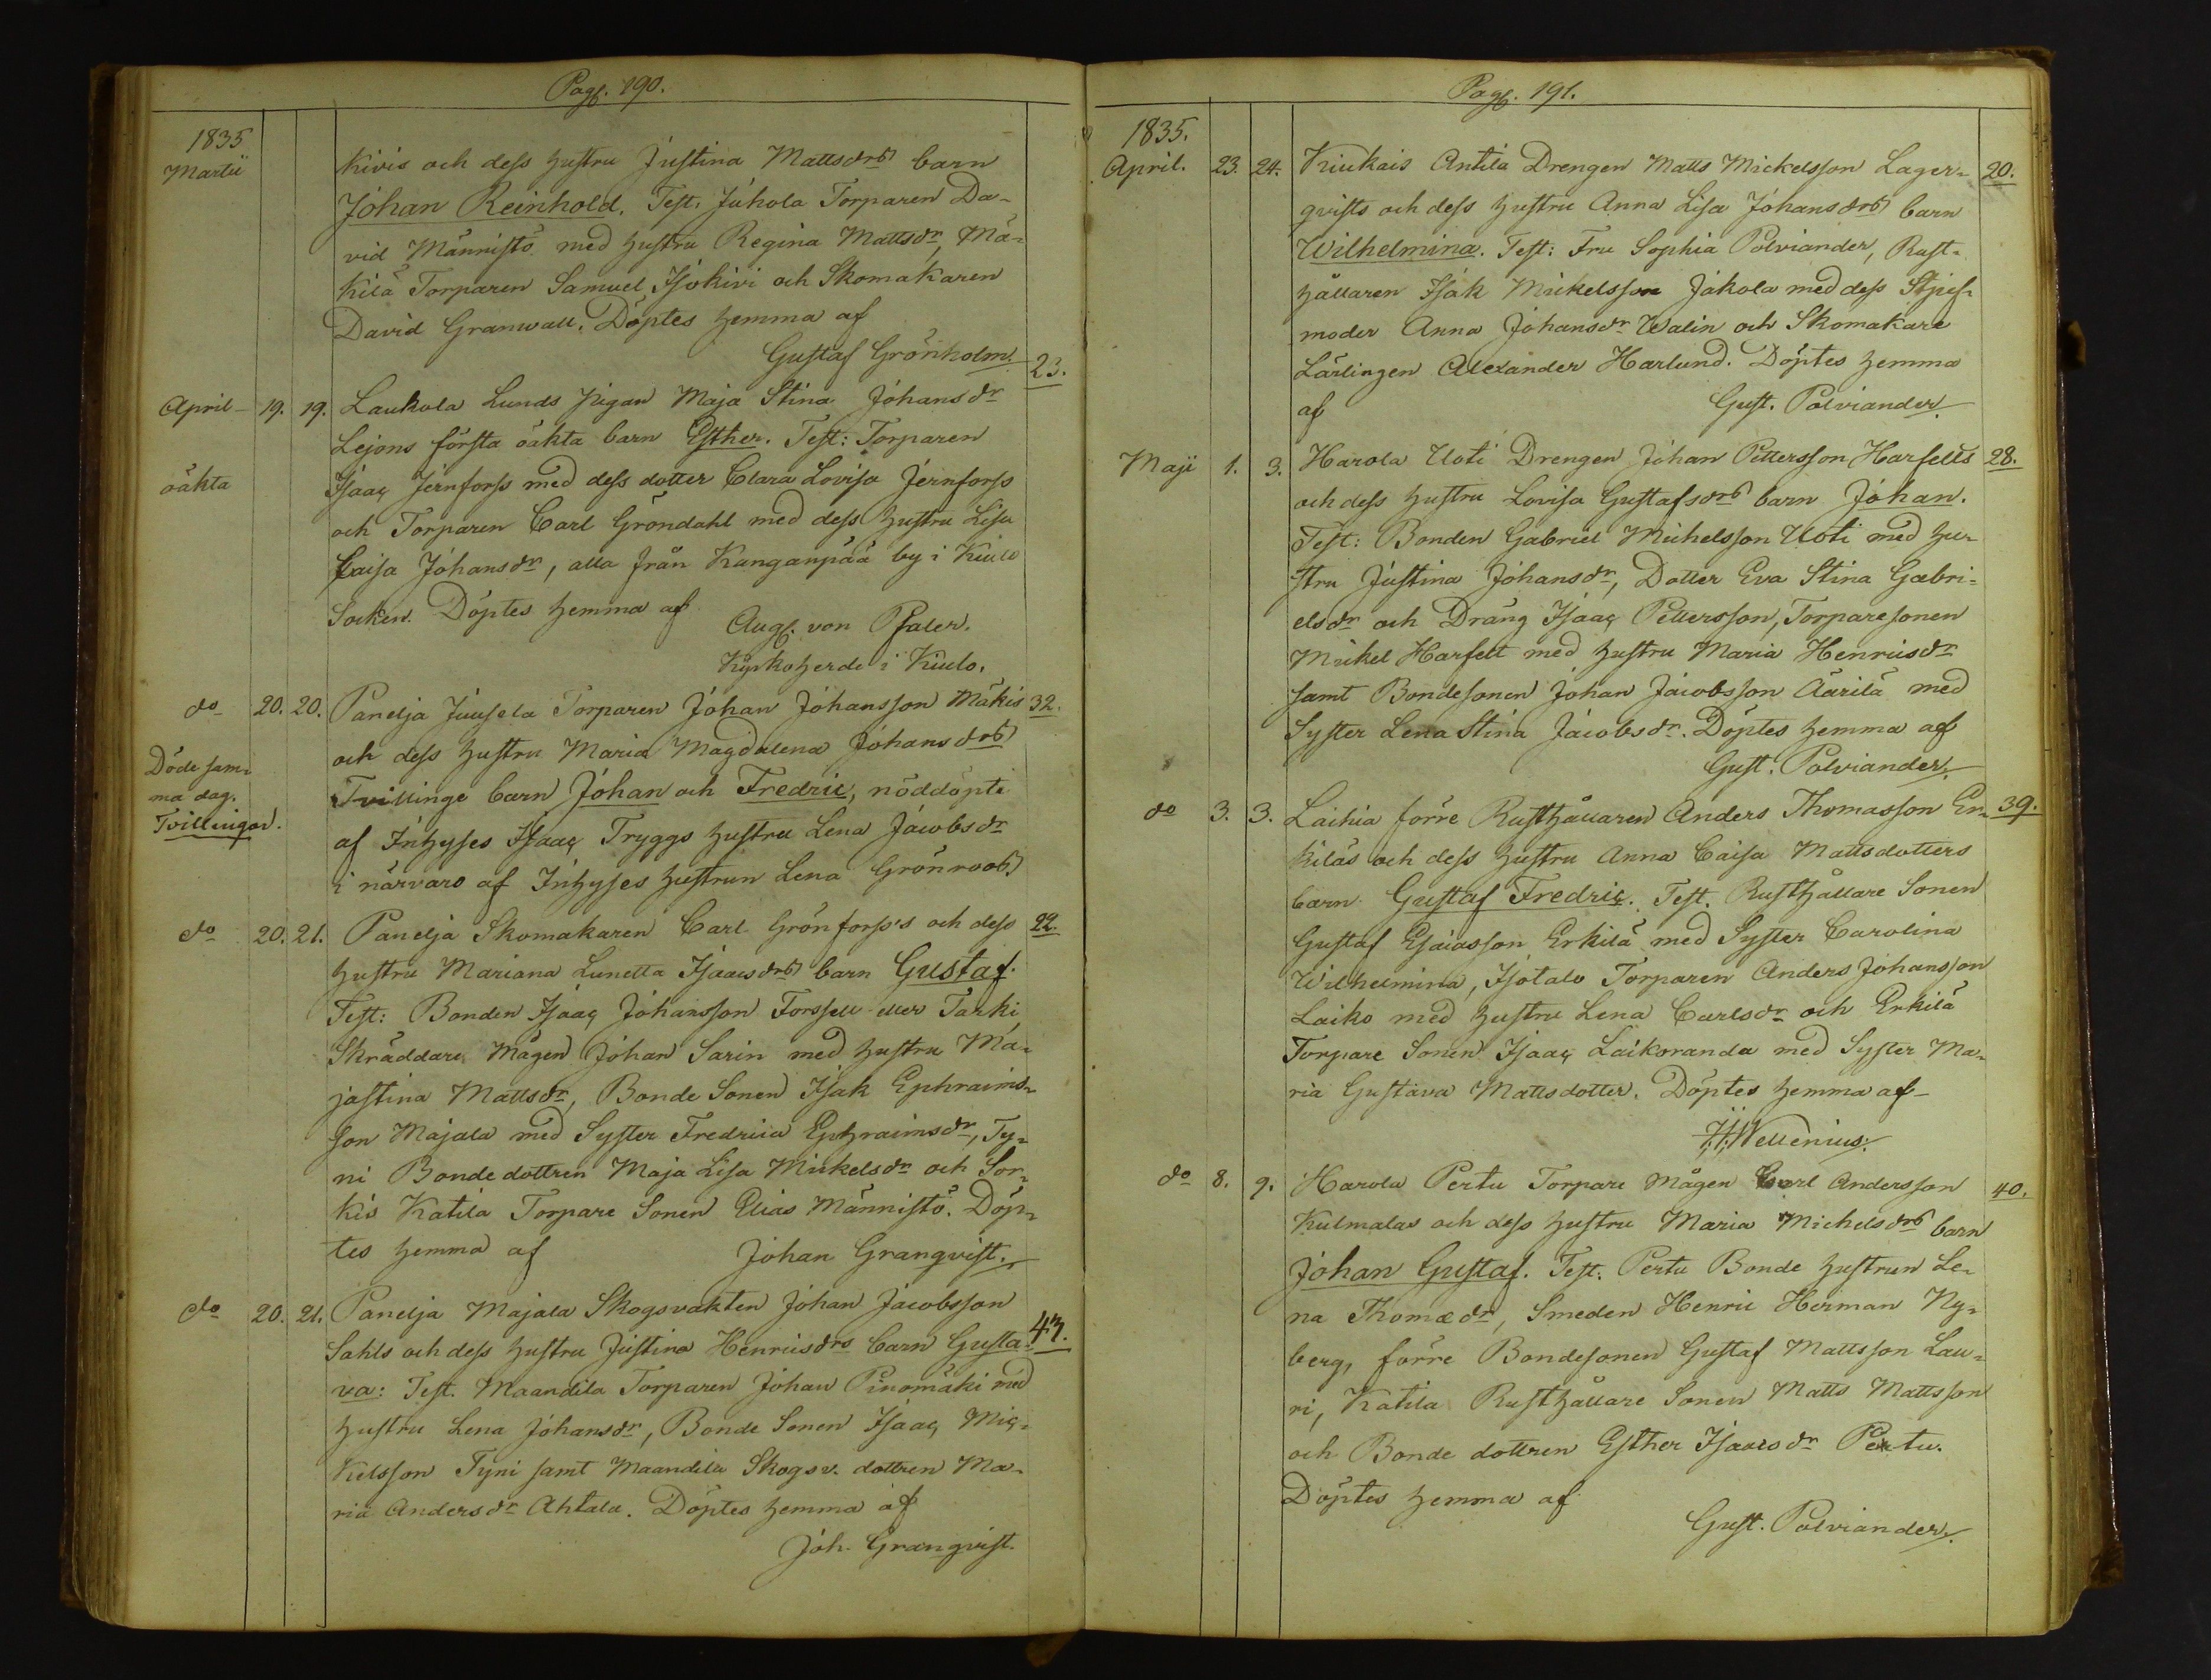 Pag. 190.
1835
Martii
Kivis och dess hustru Justina Mattsdrs barn
Johan Reinhold. Test. Juhola Torparen Da-
vid Männistö med hustru Regina Mattsdr, Mä-
kilä Torparen Samuel Isokivi och Skomakaren
David Granwall. Döptes hemma af
Gustaf Grönholm.
April 19. 19. Laukola Lunds pigan Maja Stina Johansdr 23.
Lejons första oäkta barn Esther. Test: Torparen
oäkta
Isaac Jernforss med dess dotter Clara Lovisa Jernforss
och Torparen Carl Gröndahl med dess hustru Lisa
Caisa Johansdr, alla från Kanganpää by i Kiulo
Socken. Döptes hemma af
Aug. von Pfaler.
Kyrkoherde i Kiulo.
do 20. 20. Panelja Juusela Torparen Johan Johansson Mäkis 32.
och dess hustru Maria Magdalena Johansdrs
Döde sam-
ma dag.
Tvillingar.
Tvillinge barn Johan och Fredric, nöddöpte
af Inhyses Isaac Tryggs hustru Lena Jacobsdr
i närvaro af Inhyses hustrun Lena Grönroos.
do 20. 21. Panelja Skomakaren Carl Grönforss's och dess 22.
hustru Mariana Lunetta Isaacsdrs barn Gustaf.
Test: Bonden Isaac Johansson Forssell eller Tarki,
Skräddare Mågen Johan Sarin med hustru Ma-
jastina Mattsdr, Bonde Sonen Isak Ephraims-
son Majala med Syster Fredrica Ephraimsdr, Ty-
ni Bonde dottren Maja Lisa Mickelsdr och Sor-
kis Katila Torpare Sonen Elias Männistö. Döp-
tes hemma af Johan Granqvist.
do 20. 21. Panelja Majala Skogsvakten Johan Jacobsson
Sahls och dess hustru Justina Henricsdrs barn Gusta- 43.
va: Test. Maandila Torparen Johan Pinomäki med
hustru Lena Johansdr, Bonde Sonen Isaac Mic-
kelsson Tyni samt Maandila Skogsv. dottren Ma-
ria Andersdr Ahtala. Döptes hemma af
Joh. Granqvist.
Pag. 191.
1835.
April. 23. 24. Kiukais Antila Drengen Matts Mickelsson Lager- 20.
qvists och dess hustru Anna Lisa Johansdrs barn
Wilhelmina. Test: Fru Sophia Polviander, Rust-
hållaren Isak Mickelsson Jakola med dess Stjuf-
moder Anna Johansdr Walin och Skomakare
Lärlingen Alexander Harlund. Döptes hemma
af Gust. Polviander.
Maji 1. 3. Harola Uoti Drengen Johan Pettersson Harfelts 28.
och dess hustru Lovisa Gustafsdrs barn Johan.
Test: Bonden Gabriel Michelsson Uoti med hu-
stru Justina Johansdr, Dotter Eva Stina Gabri-
elsdr och Dräng Isaac Pettersson, Torparesonen
Mickel Harfelt med hustru Maria Henricsdr
samt Bondesonen Johan Jacobsson Äärilä med
Syster Lena Stina Jacobsdr. Döptes hemma af
Gust. Polviander.
do 3. 3. Laihia förre Rusthållaren Anders Thomasson Er- 39.
kiläs och dess hustru Anna Caisa Mattsdotters
barn Gustaf Fredric. Test. Rusthållare Sonen
Gustaf Esaiasson Erkilä med Syster Carolina
Wilhelmina, Isotalo Torparen Anders Johansson
Laiko med hustru Lena Carlsdr och Erkilä
Torpare Sonen Isaac Laikoranda med Syster Ma-
ria Gustava Mattsdotter. Döptes hemma af
Wellenius.
do 8. 9. Harola Pertu Torpare Mågen Carl Andersson 40.
Kulmalas och dess hustru Maria Michelsdrs barn
Johan Gustaf. Test. Pertu Bonde hustrun Le-
na Thomædr, Smeden Henric Herman Ny-
berg, förre Bondesonen Gustaf Mattsson Lau-
ri, Katila Rusthållare Sonen Matts Mattsson
och Bonde dottren Esther Isaacsdr Pertu.
Döptes hemma af
Gust. Polviander.